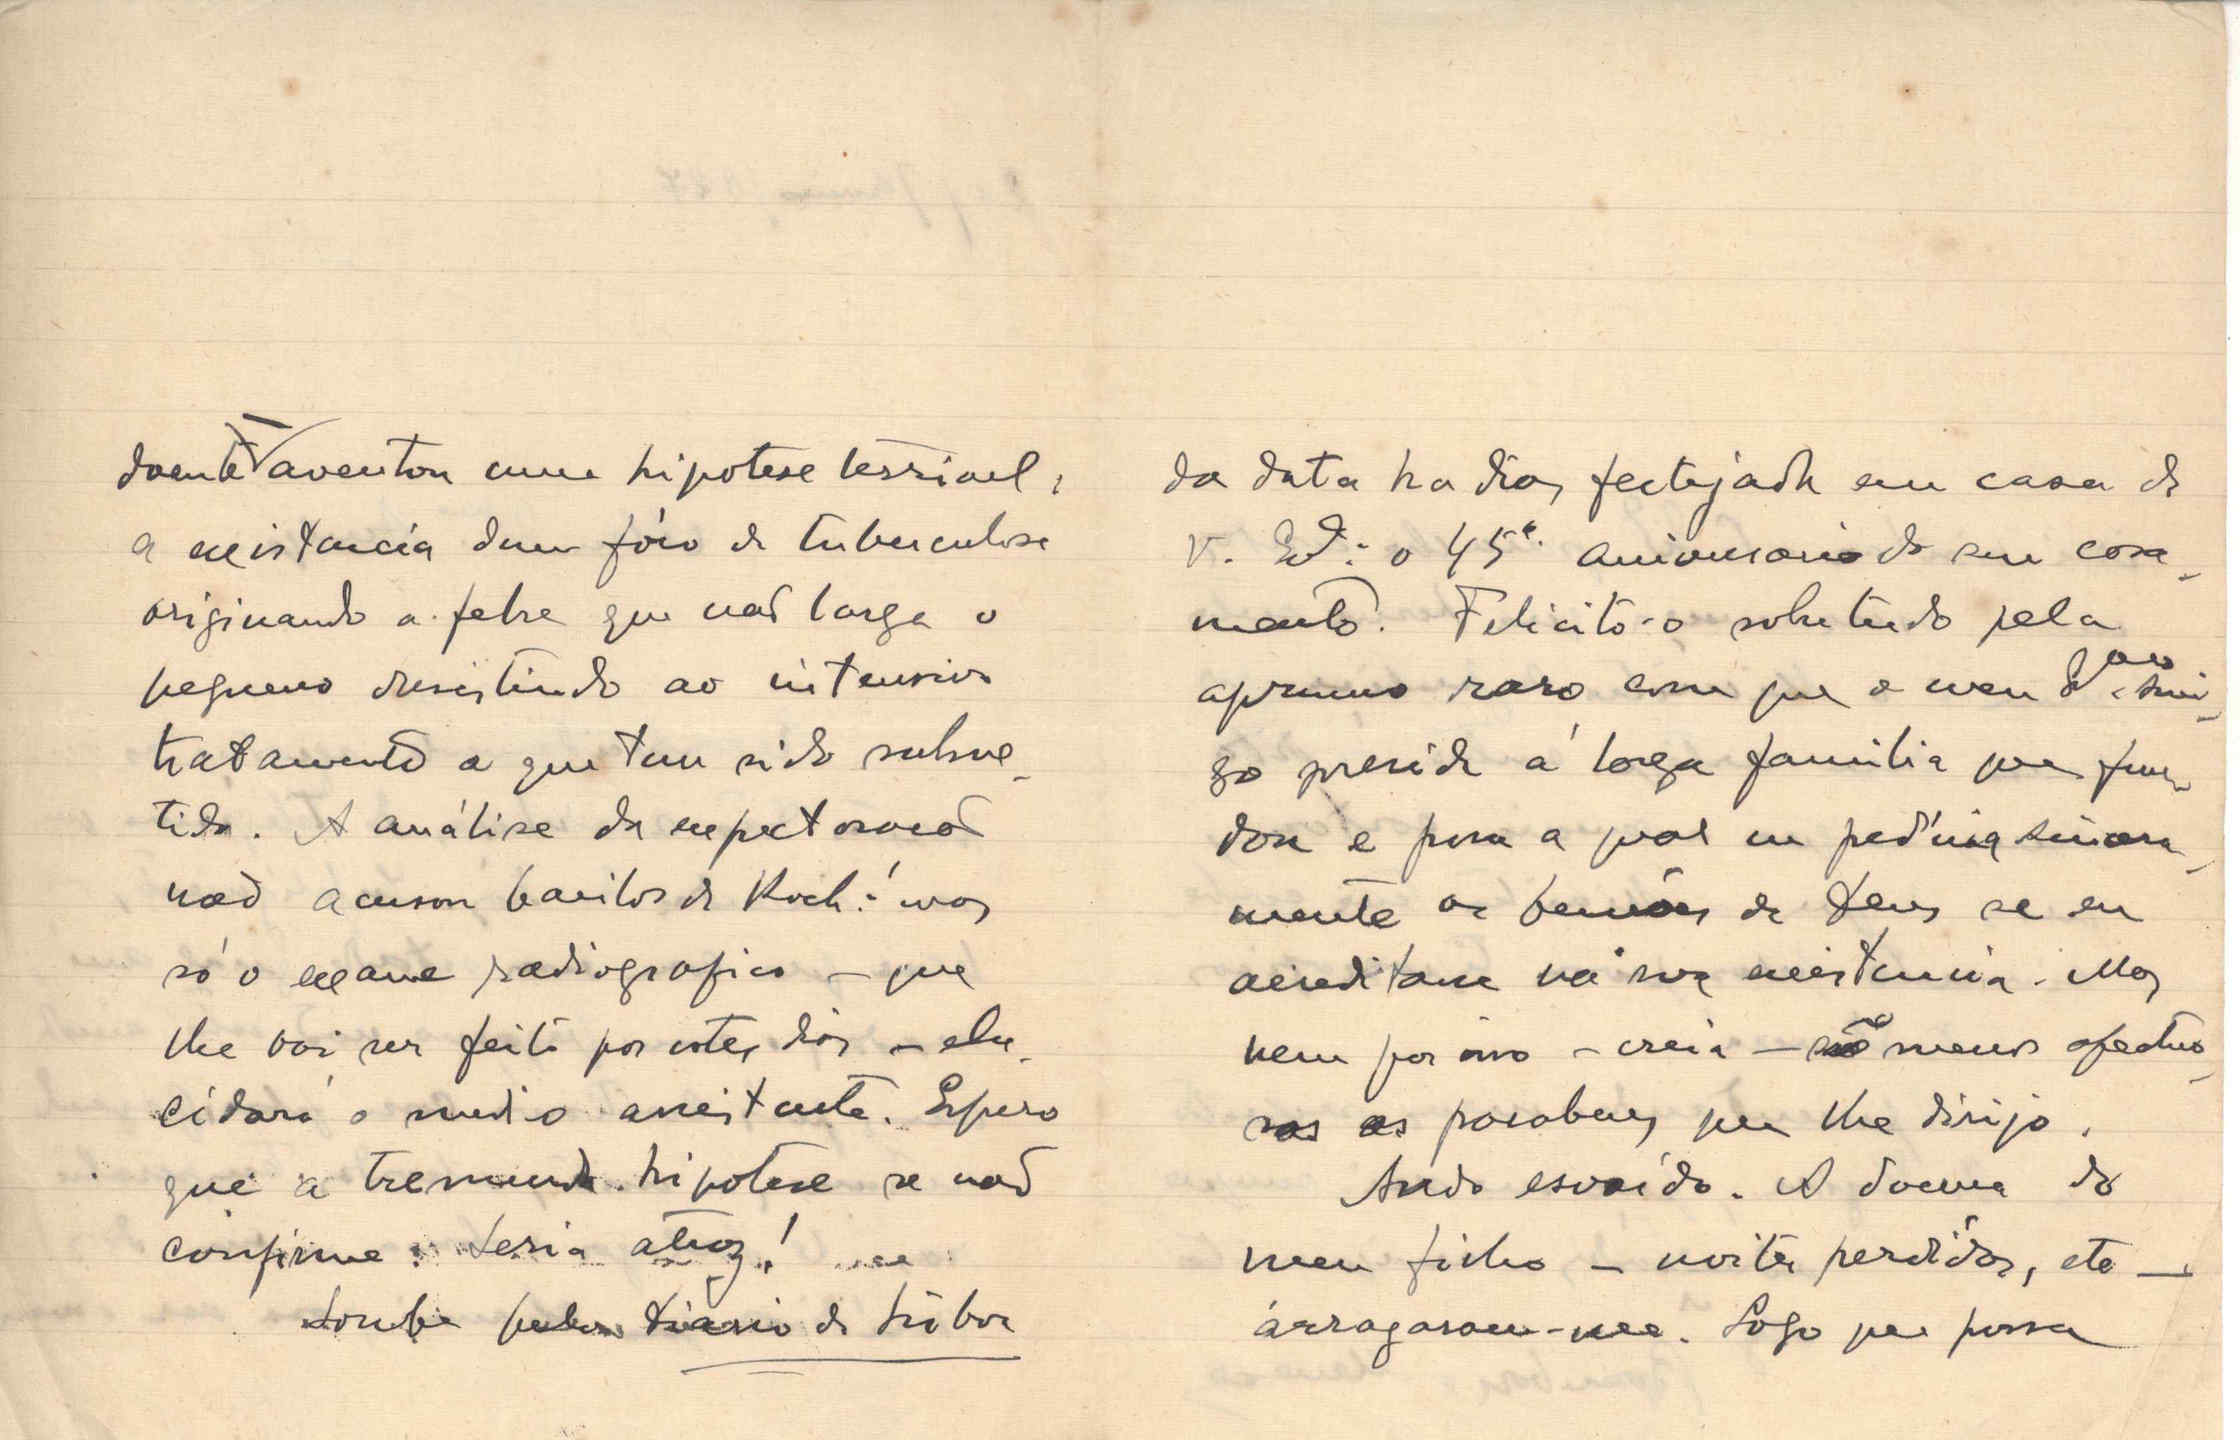 doente aventou uma hipotese terrivel:
a existencia dum fóco de tuberculose
originando a febre que não larga o
pequeno resistindo ao intensivo
tratamento a que tem sido subme-
tido. A análise da expectoração
não acusou bacilos de Koch: mas
só o exame radiografico – que
lhe vai ser feito por estes dias – elu-
cidará o medico assistente. Espero
que a tremenda hipotese se não
confirme. Seria atroz!
Soube pelo Diario de Lisboa
da data ha dias festejada em casa de
V. Ex.ª: o 45º. aniversario do seu casa-
mento. Felicito-o sobretudo pela
aprumo raro com que o meu Ex.mo Ami-
go preside á larga familia que fun-
dou e para a qual eu pediria sincera-
mente as bençãos de Deus se eu
acreditasse na sua existencia. Mas
nem por isso – creia – são menos afectuo-
sos os parabens que lhe dirijo.
Ando esvaído. A doença do
meu filho – noites perdidas, etc –
arrasaram-me. Logo que possa